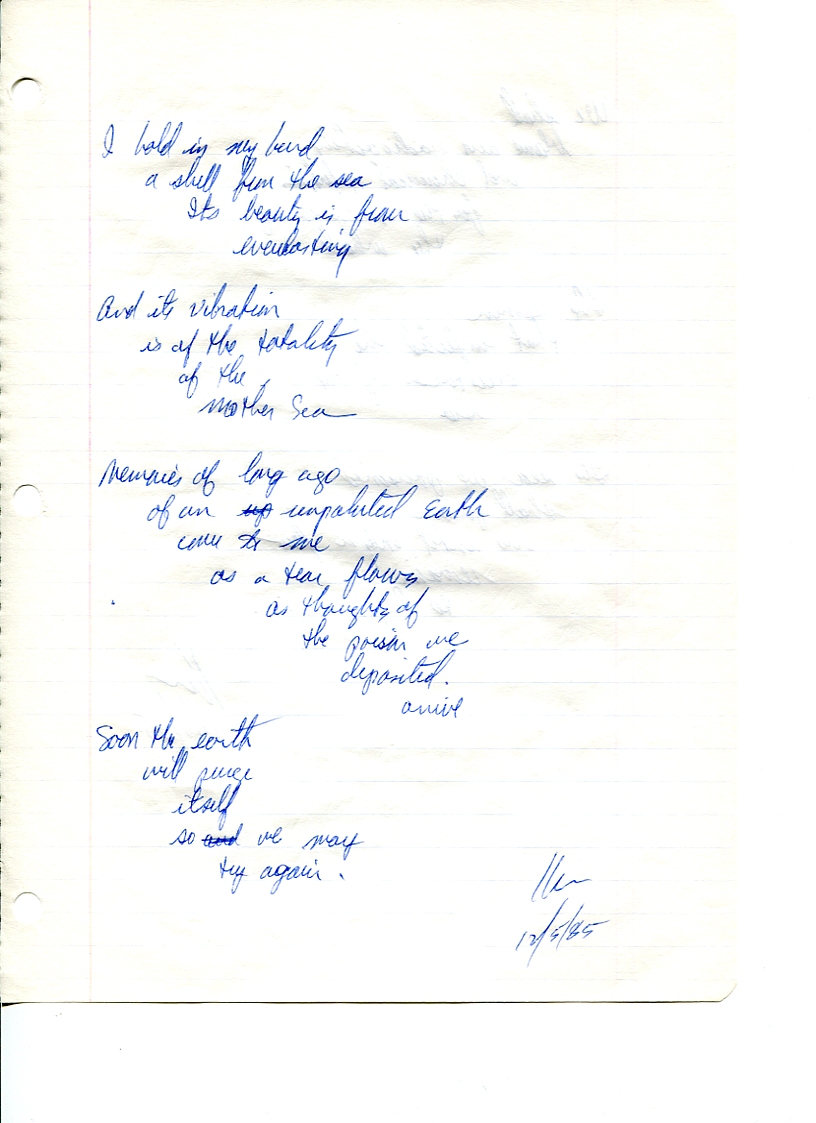 I hold in my hand
a shell from the sea
Its beauty is from
everlasting
And its vibration
is of the totality
of the
mother Sea
Memories of long ago
of an up unpoluted Earth
come to me
as a tear flows
as thoughts of
the poison we
deposited.
arrive
Soon the earth
will purge
itself
so and we may
try again.
12/5/85